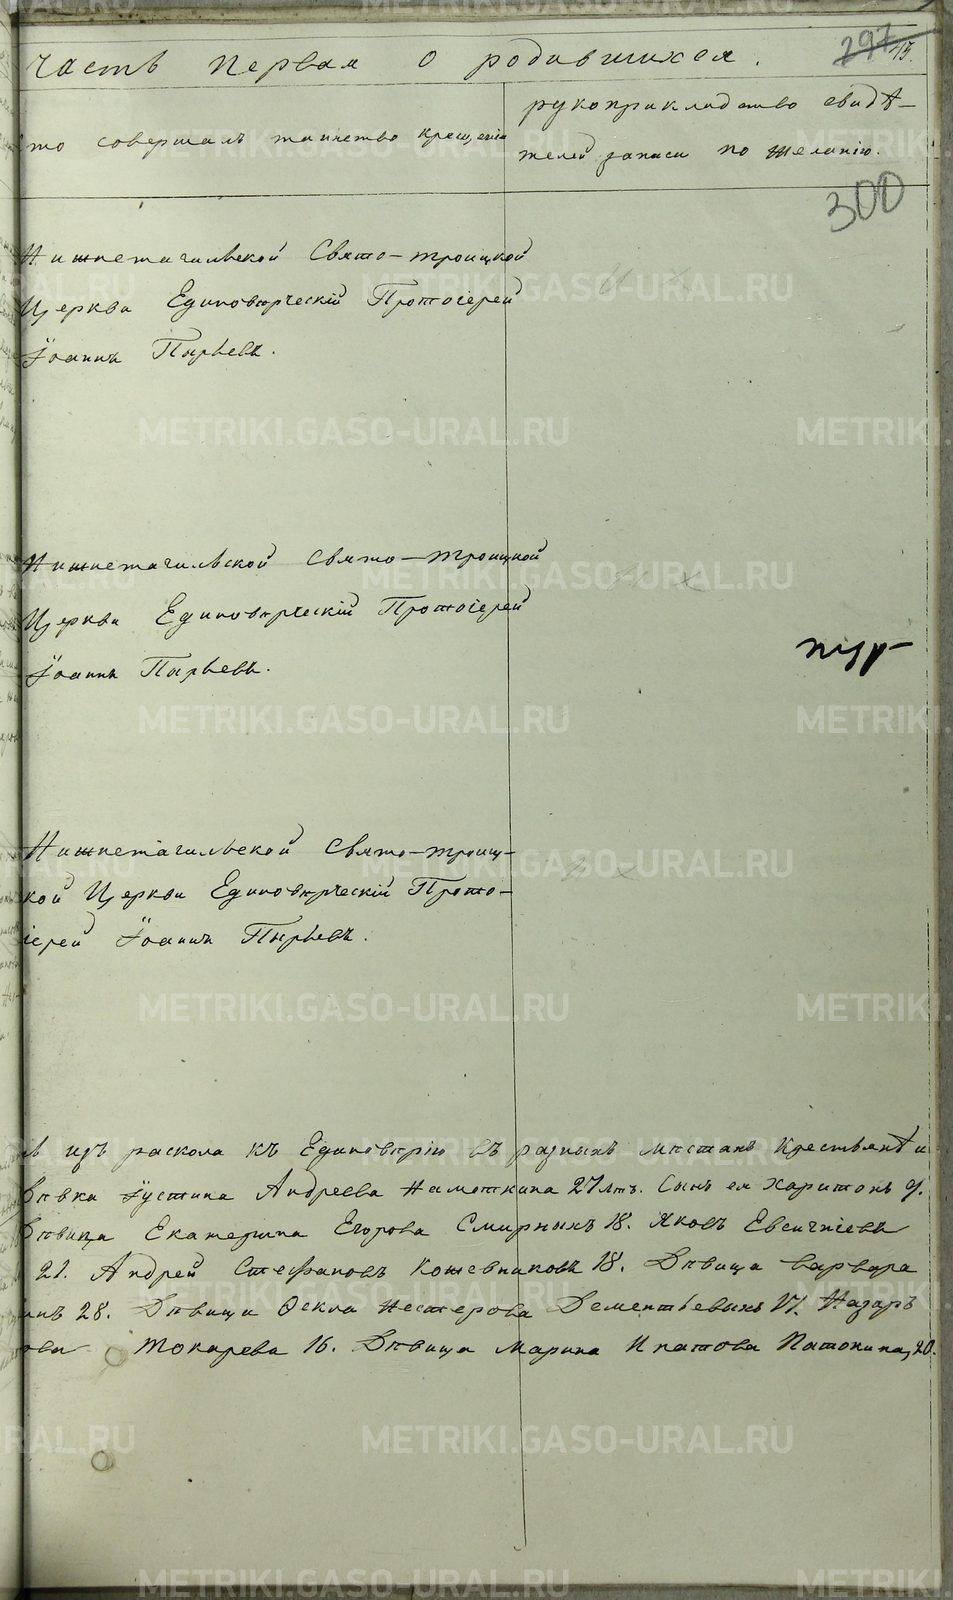 часть первая о родившихся.
297 15.
то совершалъ таинство крещенія
рукоприкладство свидѣ-
телей записи по желанію.
300
Нижнетагильской Свято-троицкой
Церкви Единовѣрческій Протоіерей
Іоаннъ Пырьевъ.
Нижнетагильской Свято-троицкой
Церкви Единовѣрческій Протоіерей
Іоаннъ Пырьевъ.
Нижнетагильской Свято-троиц-
кой Церкви Единовѣрческій Прото-
іерей Іоаннъ Пырьевъ.
изъ раскола къ Единовѣрію въ разныхъ мѣстахъ крестьянѣ и
дѣвка Іустина Андреева Намоткина 27 лѣтъ. Сынъ ея Харитонъ 9.
дѣвица Екатерина Егорова Смирныхъ 18. Яковъ Евсигніевъ
21. Андрей Стефановъ Кожевниковъ 18. Дѣвица Варвара
28. Дѣвица Ѳекла Нестерова Дементьевыхъ 17. Назаръ
ова Токарева 16. Дѣвица Марина Ипатова Патокина, 20.
METRIKI.GASO-URAL.RU